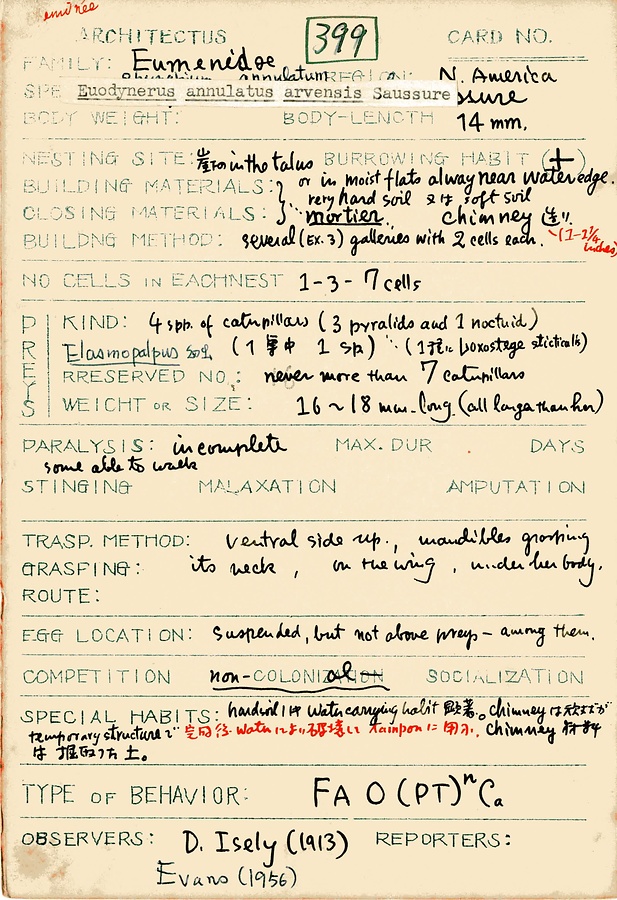 ARCHITECTUS 399 CARD NO.
FAMILY: Eumenidae REGION: N. America
SPE Euodynerus annulatus arvensis Saussure ssure
BODY WEIGHT: BODY-LENGTH 14 mm.
NESTING SITE: 崖 in the talus BURROWING HABIT (+)
BUILDING MATERIALS: or in moist flats alway near water edge.
very hard soil 又は soft soil
CLOSING MATERIALS: mortier. chimney
BUILDNG METHOD: several (EX. 3) galleries with 2 cells each. (1-1¼ inches)
NO CELLS IN EACHNEST 1-3-7 cells
PREYS
KIND: 4 spp. of caterpillars (3 pyralids and 1 noctuid)
Elasmopalpus (1巣中 1 sp) Loxostege sticticalis)
RRESERVED NO.: never more than 7 caterpillars
WEICHT OR SIZE: 16~18 mm. long. (all larger than her)
PARALYSIS: incomplete MAX. DUR DAYS
some able to walk
STINGING MALAXATION AMPUTATION
TRASP. METHOD: ventral side up., mandibles grasping
GRASPING: its neck, on the wing, under her body.
ROUTE:
EGG LOCATION: suspended, but not above preys - among them.
COMPETITION non-COLONIZATION al SOCIALIZATION
SPECIAL HABITS: hard soil には water carrying habit 顕著。chimney は
temporary structure で 完成後 water により破壊して tampon に用う. chimney 材料
は 掘取った土。
TYPE OF BEHAVIOR: FA O (PT)ⁿ Ca
OBSERVERS: D. Isely (1913) REPORTERS:
Evans (1956)